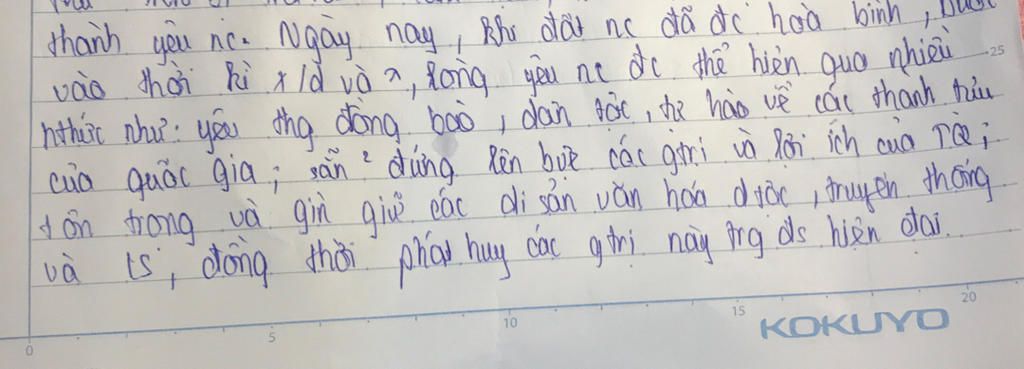 thành yêu nc. Ngày nay, khi đất nc đã đc hoà bình, bước
vào thời kì x/d và ʔ, lòng yêu nc đc thể hiện qua nhiều
hthức như: yêu thg đồng bào, dân tộc, tự hào về các thành tựu
của quốc gia; sẵn ² đứng lên bvệ các gtrị và lợi ích của TQ;
tôn trọng và gìn giữ các di sản văn hoá dtộc, truyền thống
và ls, đồng thời phát huy các gtrị này trg đs hiện đại.
25
0 5 10 15 20
KOKUYO